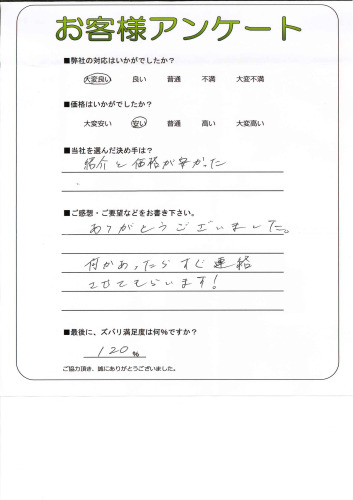 お客様アンケート
■弊社の対応はいかがでしたか?
大変良い 良い 普通 不満 大変不満
■価格はいかがでしたか?
大変安い 安い 普通 高い 大変高い
■当社を選んだ決め手は?
紹介と価格が安かった
■ご感想・ご要望などをお書き下さい。
ありがとうございました。
何かあったらすぐ連絡
させてもらいます!
■最後に、ズバリ満足度は何%ですか?
120 %
ご協力頂き、誠にありがとうございました。